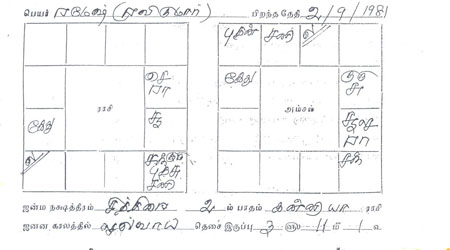 பெயர் ரமேஷ் (ரவிகுமார்) பிறந்த தேதி 2/9/1981
புதன் சனி ல
செ ரா கேது குரு
ராசி அம்சம்
கேது சூ ரா
ல சனி சந்
ஜன்ம நக்ஷத்திரம் சித்திரை 2 ம் பாதம் கன்னியா ராசி
ஜனன காலத்தில் செவ்வாய் தெசை இருப்பு 3 11 1